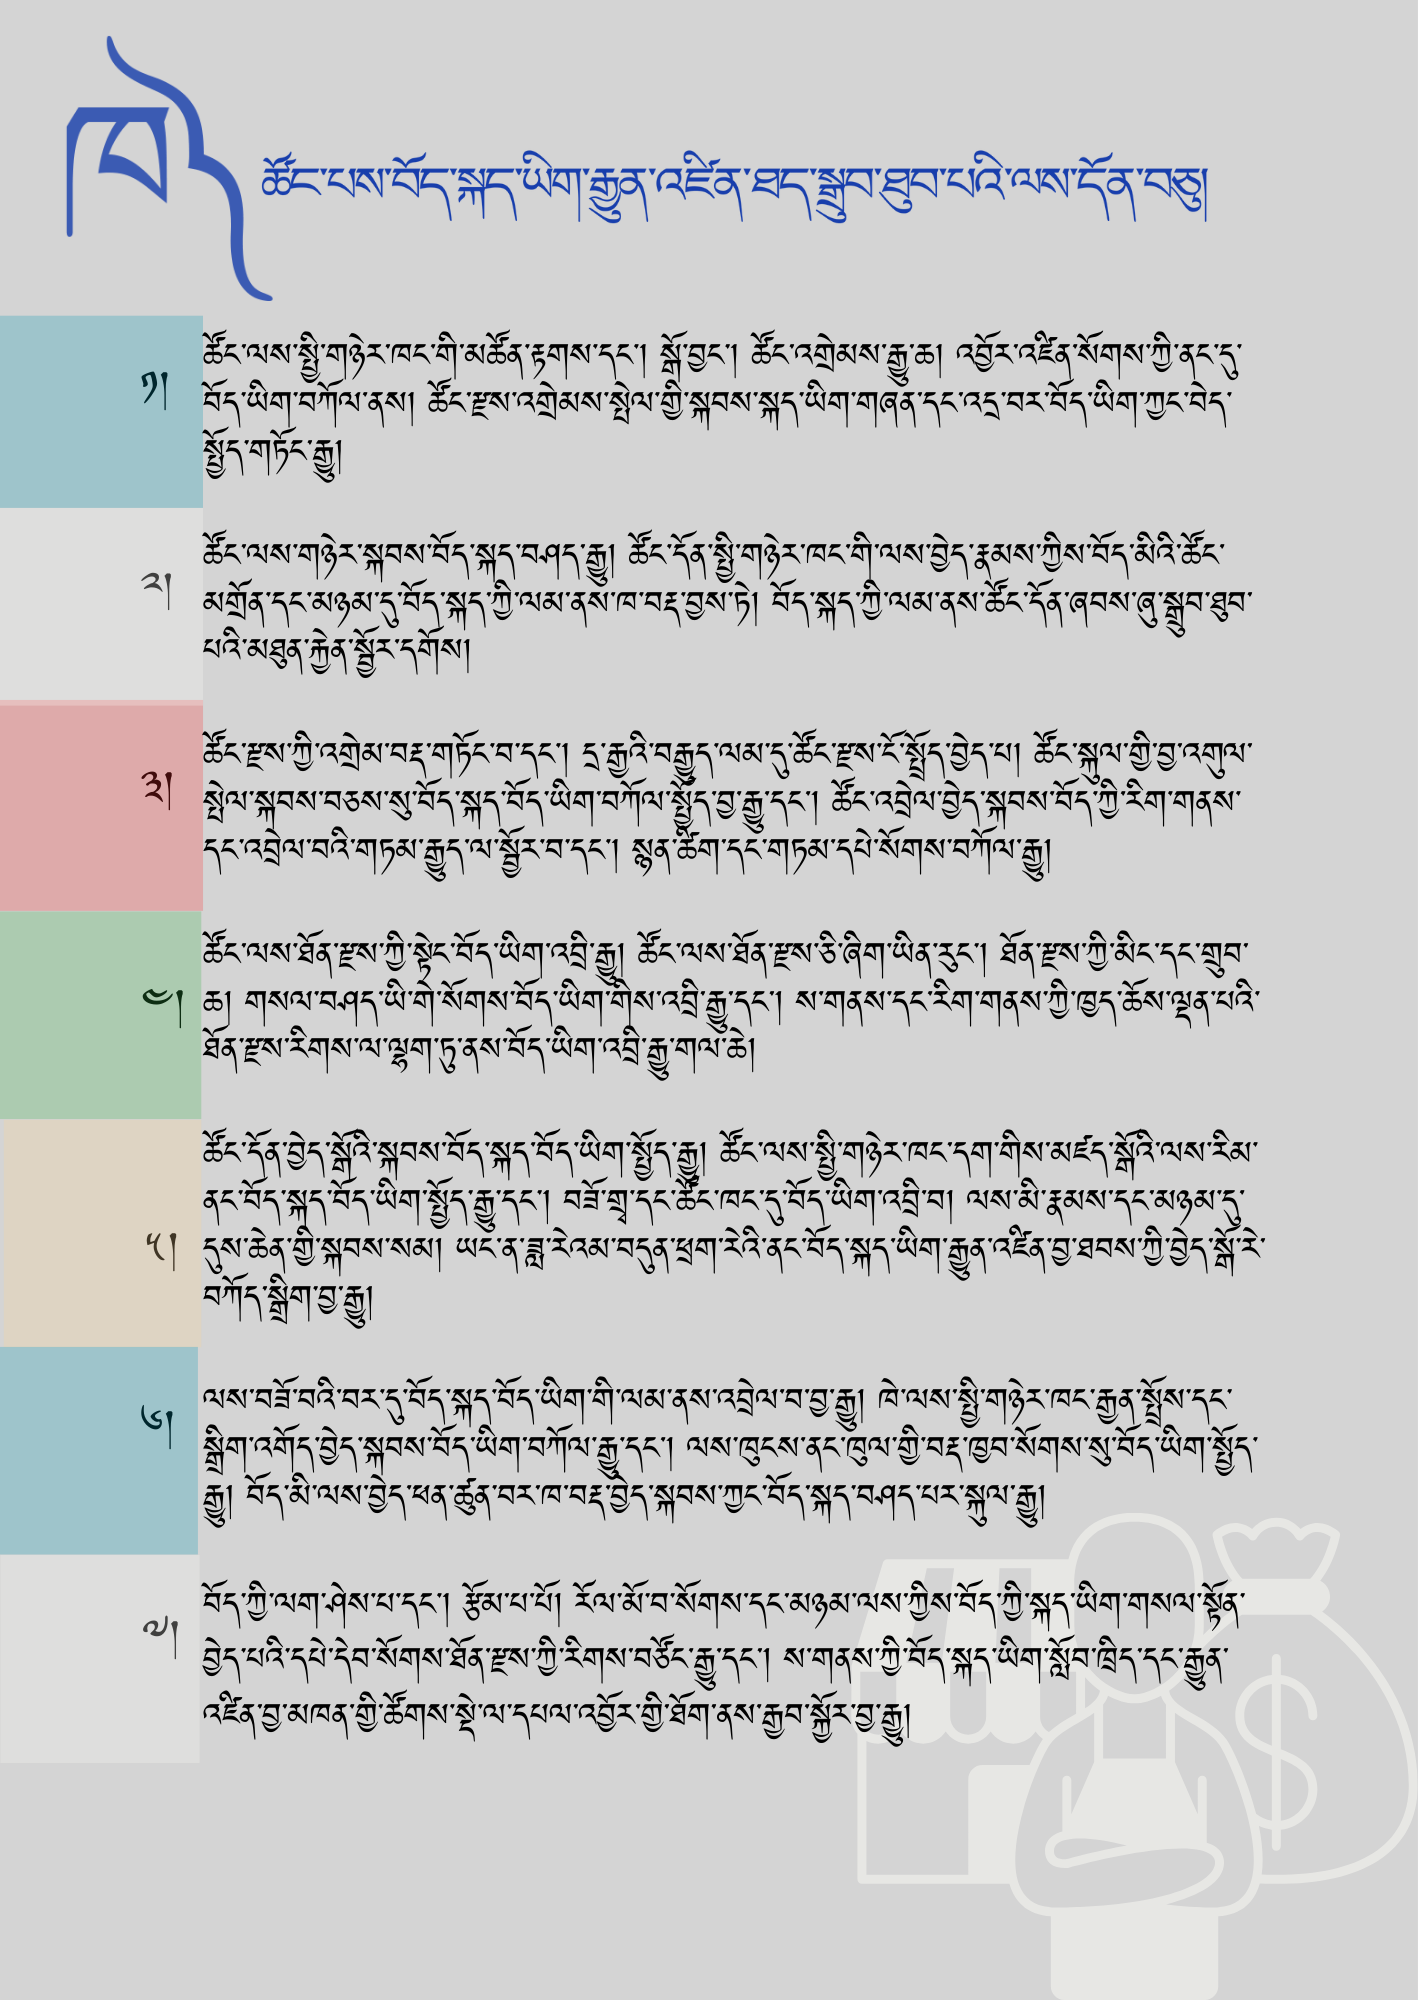 ཁེ
ཚོང་པས་བོད་སྐད་ཡིག་རྒྱུན་འཛིན་ཐད་སྒྲུབ་ཐུབ་པའི་ལས་དོན་བཅུ།
༡།
ཚོང་ལས་སྤྱི་གཉེར་ཁང་གི་མཚོན་རྟགས་དང་། སྒོ་བྱང་། ཚོང་འགྲེམས་རྒྱུ་ཆ། འབྱོར་འཛིན་སོགས་ཀྱི་ནང་དུ་
བོད་ཡིག་བཀོལ་ནས། ཚོང་རྫས་འགྲེམས་སྤེལ་གྱི་སྐབས་སྐད་ཡིག་གཞན་དང་འདྲ་བར་བོད་ཡིག་ཀྱང་བེད་
སྤྱོད་གཏོང་རྒྱུ།
༢།
ཚོང་ལས་གཉེར་སྐབས་བོད་སྐད་བཤད་རྒྱུ། ཚོང་དོན་སྤྱི་གཉེར་ཁང་གི་ལས་བྱེད་རྣམས་ཀྱིས་བོད་མིའི་ཚོང་
མགྲོན་དང་མཉམ་དུ་བོད་སྐད་ཀྱི་ལམ་ནས་ཁ་བརྡ་བྱས་ཏེ། བོད་སྐད་ཀྱི་ལམ་ནས་ཚོང་དོན་ཞབས་ཞུ་སྒྲུབ་ཐུབ་
པའི་མཐུན་རྐྱེན་སྦྱོར་དགོས།
༣།
ཚོང་རྫས་ཀྱི་འགྲེམ་བརྡ་གཏོང་བ་དང་། དྲ་རྒྱའི་བརྒྱུད་ལམ་དུ་ཚོང་རྫས་ངོ་སྤྲོད་བྱེད་པ། ཚོང་སྐུལ་གྱི་བྱ་འགུལ་
སྤེལ་སྐབས་བཅས་སུ་བོད་སྐད་བོད་ཡིག་བཀོལ་སྤྱོད་བྱ་རྒྱུ་དང་། ཚོང་འབྲེལ་བྱེད་སྐབས་བོད་ཀྱི་རིག་གནས་
དང་འབྲེལ་བའི་གཏམ་རྒྱུད་ལ་སྦྱོར་བ་དང་། སྙན་ཚིག་དང་གཏམ་དཔེ་སོགས་བཀོལ་རྒྱུ།
༤།
ཚོང་ལས་ཐོན་རྫས་ཀྱི་སྟེང་བོད་ཡིག་འབྲི་རྒྱུ། ཚོང་ལས་ཐོན་རྫས་ཅི་ཞིག་ཡིན་རུང་། ཐོན་རྫས་ཀྱི་མིང་དང་གྲུབ་
ཆ། གསལ་བཤད་ཡི་གེ་སོགས་བོད་ཡིག་གིས་འབྲི་རྒྱུ་དང་། ས་གནས་དང་རིག་གནས་ཀྱི་ཁྱད་ཆོས་ལྡན་པའི་
ཐོན་རྫས་རིགས་ལ་ལྷག་ཏུ་ནས་བོད་ཡིག་འབྲི་རྒྱུ་གལ་ཆེ།
༥།
ཚོང་དོན་བྱེད་སྒོའི་སྐབས་བོད་སྐད་བོད་ཡིག་སྤྱོད་རྒྱུ། ཚོང་ལས་སྤྱི་གཉེར་ཁང་དག་གིས་མཛད་སྒོའི་ལས་རིམ་
ནང་བོད་སྐད་བོད་ཡིག་སྤྱོད་རྒྱུ་དང་། བཟོ་གྲྭ་དང་ཚོང་ཁང་དུ་བོད་ཡིག་འབྲི་བ། ལས་མི་རྣམས་དང་མཉམ་དུ་
དུས་ཆེན་གྱི་སྐབས་སམ། ཡང་ན་ཟླ་རེའམ་བདུན་ཕྲག་རེའི་ནང་བོད་སྐད་ཡིག་རྒྱུན་འཛིན་བྱ་ཐབས་ཀྱི་བྱེད་སྒོ་རེ་
བཀོད་སྒྲིག་བྱ་རྒྱུ།
༦།
ལས་བཟོ་བའི་བར་དུ་བོད་སྐད་བོད་ཡིག་གི་ལམ་ནས་འབྲེལ་བ་བྱ་རྒྱུ། ཁེ་ལས་སྤྱི་གཉེར་ཁང་རྒྱན་སྤྲོས་དང་
སྒྲིག་འགོད་བྱེད་སྐབས་བོད་ཡིག་བཀོལ་རྒྱུ་དང་། ལས་ཁུངས་ནང་ཁུལ་གྱི་བརྡ་ཁྱབ་སོགས་སུ་བོད་ཡིག་སྤྱོད་
རྒྱུ། བོད་མི་ལས་བྱེད་ཕན་ཚུན་བར་ཁ་བརྡ་བྱེད་སྐབས་ཀྱང་བོད་སྐད་བཤད་པར་སྐུལ་རྒྱུ།
༧།
བོད་ཀྱི་ལག་ཤེས་པ་དང་། རྩོམ་པ་པོ། རོལ་མོ་བ་སོགས་དང་མཉམ་ལས་ཀྱིས་བོད་ཀྱི་སྐད་ཡིག་གསལ་སྟོན་
བྱེད་པའི་དཔེ་དེབ་སོགས་ཐོན་རྫས་ཀྱི་རིགས་བཙོང་རྒྱུ་དང་། ས་གནས་ཀྱི་བོད་སྐད་ཡིག་སློབ་ཁྲིད་དང་རྒྱུན་
འཛིན་བྱ་མཁན་གྱི་ཚོགས་སྡེ་ལ་དཔལ་འབྱོར་གྱི་ཐོག་ནས་རྒྱབ་སྐྱོར་བྱ་རྒྱུ།